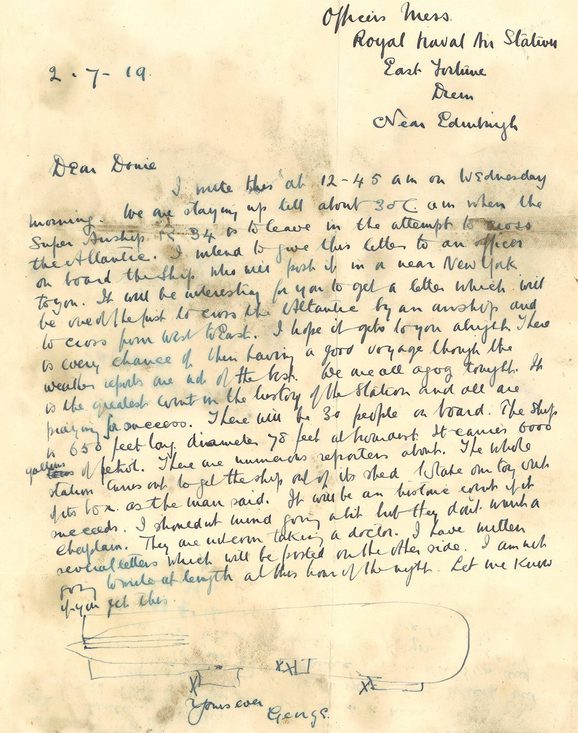 Officers Mess.
Royal Naval Air Station
East Fortune
Drem
Near Edinburgh
2-7-19.
Dear Donie
I write this at 12-45 am on Wednesday
morning. We are staying up till about am when the
Super Airship R 34 is to leave in the attempt to cross
the Atlantic. I intend to give this letter to an officer
on board the Ship who will post it in a near New York
to you. It will be interesting for you to get a letter which will
be one of the first to cross the Atlantic by an airship and
to cross from West to East. I hope it gets to you alright. There
is every chance of them having a good voyage though the
weather reports are not of the best. We are all agog tonight. It
is the greatest event in the history of the Station and all are
praying for success. There will be 30 people on board. The Ship
is 650 feet long, diameter 78 feet at broadest. It carries 6000
gallons of petrol. There are numerous reporters about. The whole
station turns out to get the ship out of its shed to take our toy out
of its box as the man said. It will be an historic event if it
succeeds. I should not mind going a bit but they don't want a
Chaplain. They are not even taking a doctor. I have written
several letters which will be posted on the other side. I am not
going to write at length at this hour of the night. Let me know
if you get this.
Yours ever
George.